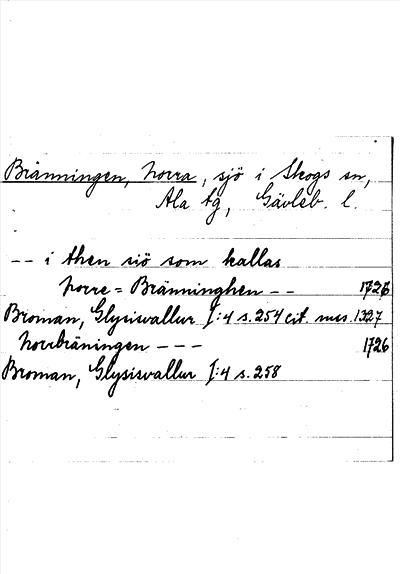 Bränningen, Norra, sjö i Skogs sn,
Ala tg, Gävleb. l.
-- i then siö som kallas
Norre = Bränninghen -- 1726
Broman, Glysisvallur I:4 s.254 cit. mss. 1327
Norrbräningen --- 1726
Broman, Glysisvallur I:4 s.258